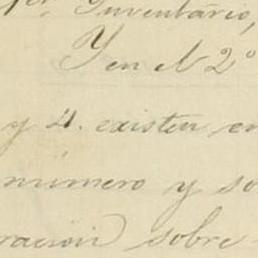 Inventario,
Y en el 2º
y 4. existen en
número y so
ración sobre